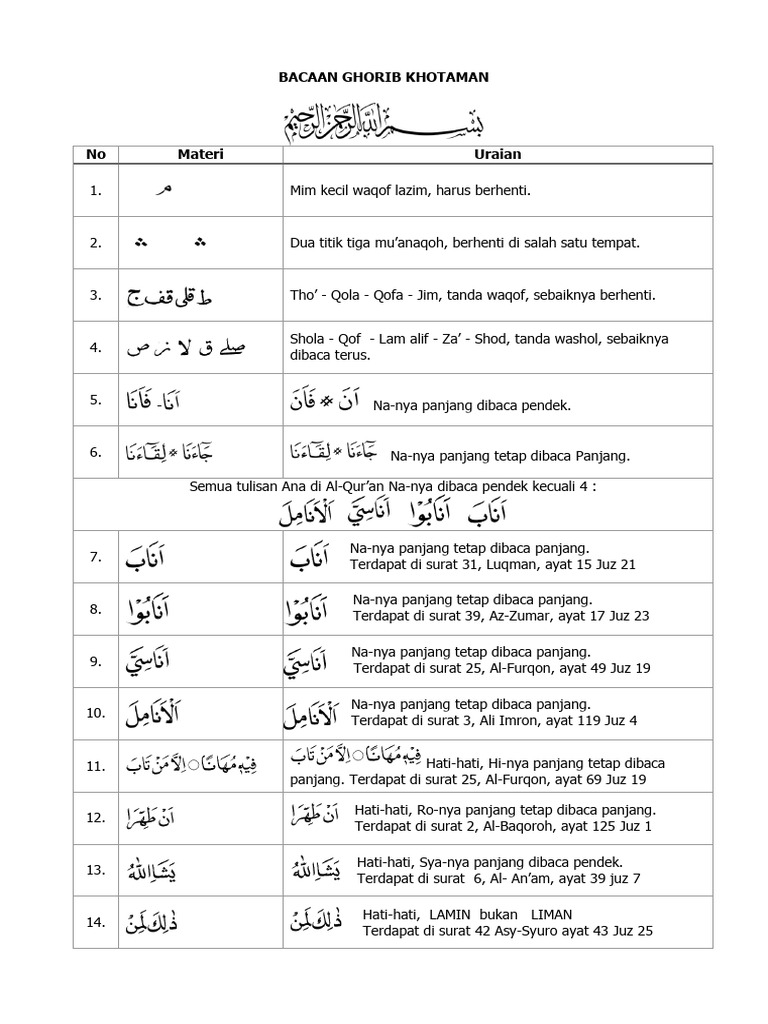 BACAAN GHORIB KHOTAMAN
بسم الله الرحمن الرحيم
No Materi Uraian
1. م Mim kecil waqof lazim, harus berhenti.
2. ∴ ∴ Dua titik tiga mu’anaqoh, berhenti di salah satu tempat.
3. ط قلى قف ج Tho’ - Qola - Qofa - Jim, tanda waqof, sebaiknya berhenti.
4. صلے ق لا ز ص Shola - Qof - Lam alif - Za’ - Shod, tanda washol, sebaiknya
dibaca terus.
5. اَنَا - فَاَنَا اَنَ * فَاَنَ Na-nya panjang dibaca pendek.
6. جَآءَنَا * لِقَآءَنَا جَآءَنَا * لِقَآءَنَا Na-nya panjang tetap dibaca Panjang.
Semua tulisan Ana di Al-Qur’an Na-nya dibaca pendek kecuali 4 :
اَنَابَ اَنَابُوْا اَنَاسِيَّ اَلْاَنَامِلَ
7. اَنَابَ اَنَابَ Na-nya panjang tetap dibaca panjang.
Terdapat di surat 31, Luqman, ayat 15 Juz 21
8. اَنَابُوْا اَنَابُوْا Na-nya panjang tetap dibaca panjang.
Terdapat di surat 39, Az-Zumar, ayat 17 Juz 23
9. اَنَاسِيَّ اَنَاسِيَّ Na-nya panjang tetap dibaca panjang.
Terdapat di surat 25, Al-Furqon, ayat 49 Juz 19
10. اَلْاَنَامِلَ اَلْاَنَامِلَ Na-nya panjang tetap dibaca panjang.
Terdapat di surat 3, Ali Imron, ayat 119 Juz 4
11. فِيْهٖ مُهَانًا ۝ اِلَّا مَنْ تَابَ فِيْهٖ مُهَانًا ۝ اِلَّا مَنْ تَابَ Hati-hati, Hi-nya panjang tetap dibaca
panjang. Terdapat di surat 25, Al-Furqon, ayat 69 Juz 19
12. اَنْ طَهِّرَا اَنْ طَهِّرَا Hati-hati, Ro-nya panjang tetap dibaca panjang.
Terdapat di surat 2, Al-Baqoroh, ayat 125 Juz 1
13. يَشَاِ اللّٰهُ يَشَاِ اللّٰهُ Hati-hati, Sya-nya panjang dibaca pendek.
Terdapat di surat 6, Al- An’am, ayat 39 juz 7
14. ذٰلِكَ لَمِنْ ذٰلِكَ لَمِنْ Hati-hati, LAMIN bukan LIMAN
Terdapat di surat 42 Asy-Syuro ayat 43 Juz 25